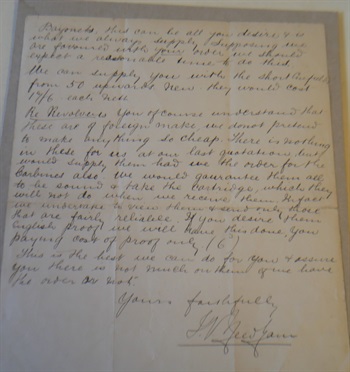 Bayonets, this can be all you desire & is
what we always supply. Supposing we
are favoured with your order we should
expect a reasonable time to do these
We can supply you with the Short Enfields
from 50 upwards new. they would cost
17/6 each nett
Re Revolvers You of course understand that
these are of foreign make, we do not pretend
to make anything so cheap. There is nothing
in these for us at our last quotation, but
would supply them had we the order for the
Carbines also We would guarantee them all
to be sound & take the Cartridge, which they
will not do when we receive them. In fact
we undertake to view them & send only those
that are fairly reliable. If you desire them
English proof we will have this done you
paying cost of proof only (6
This is the best we can do for you & assure
you there is not much on them if we have
the order or not.
Yours faithfully